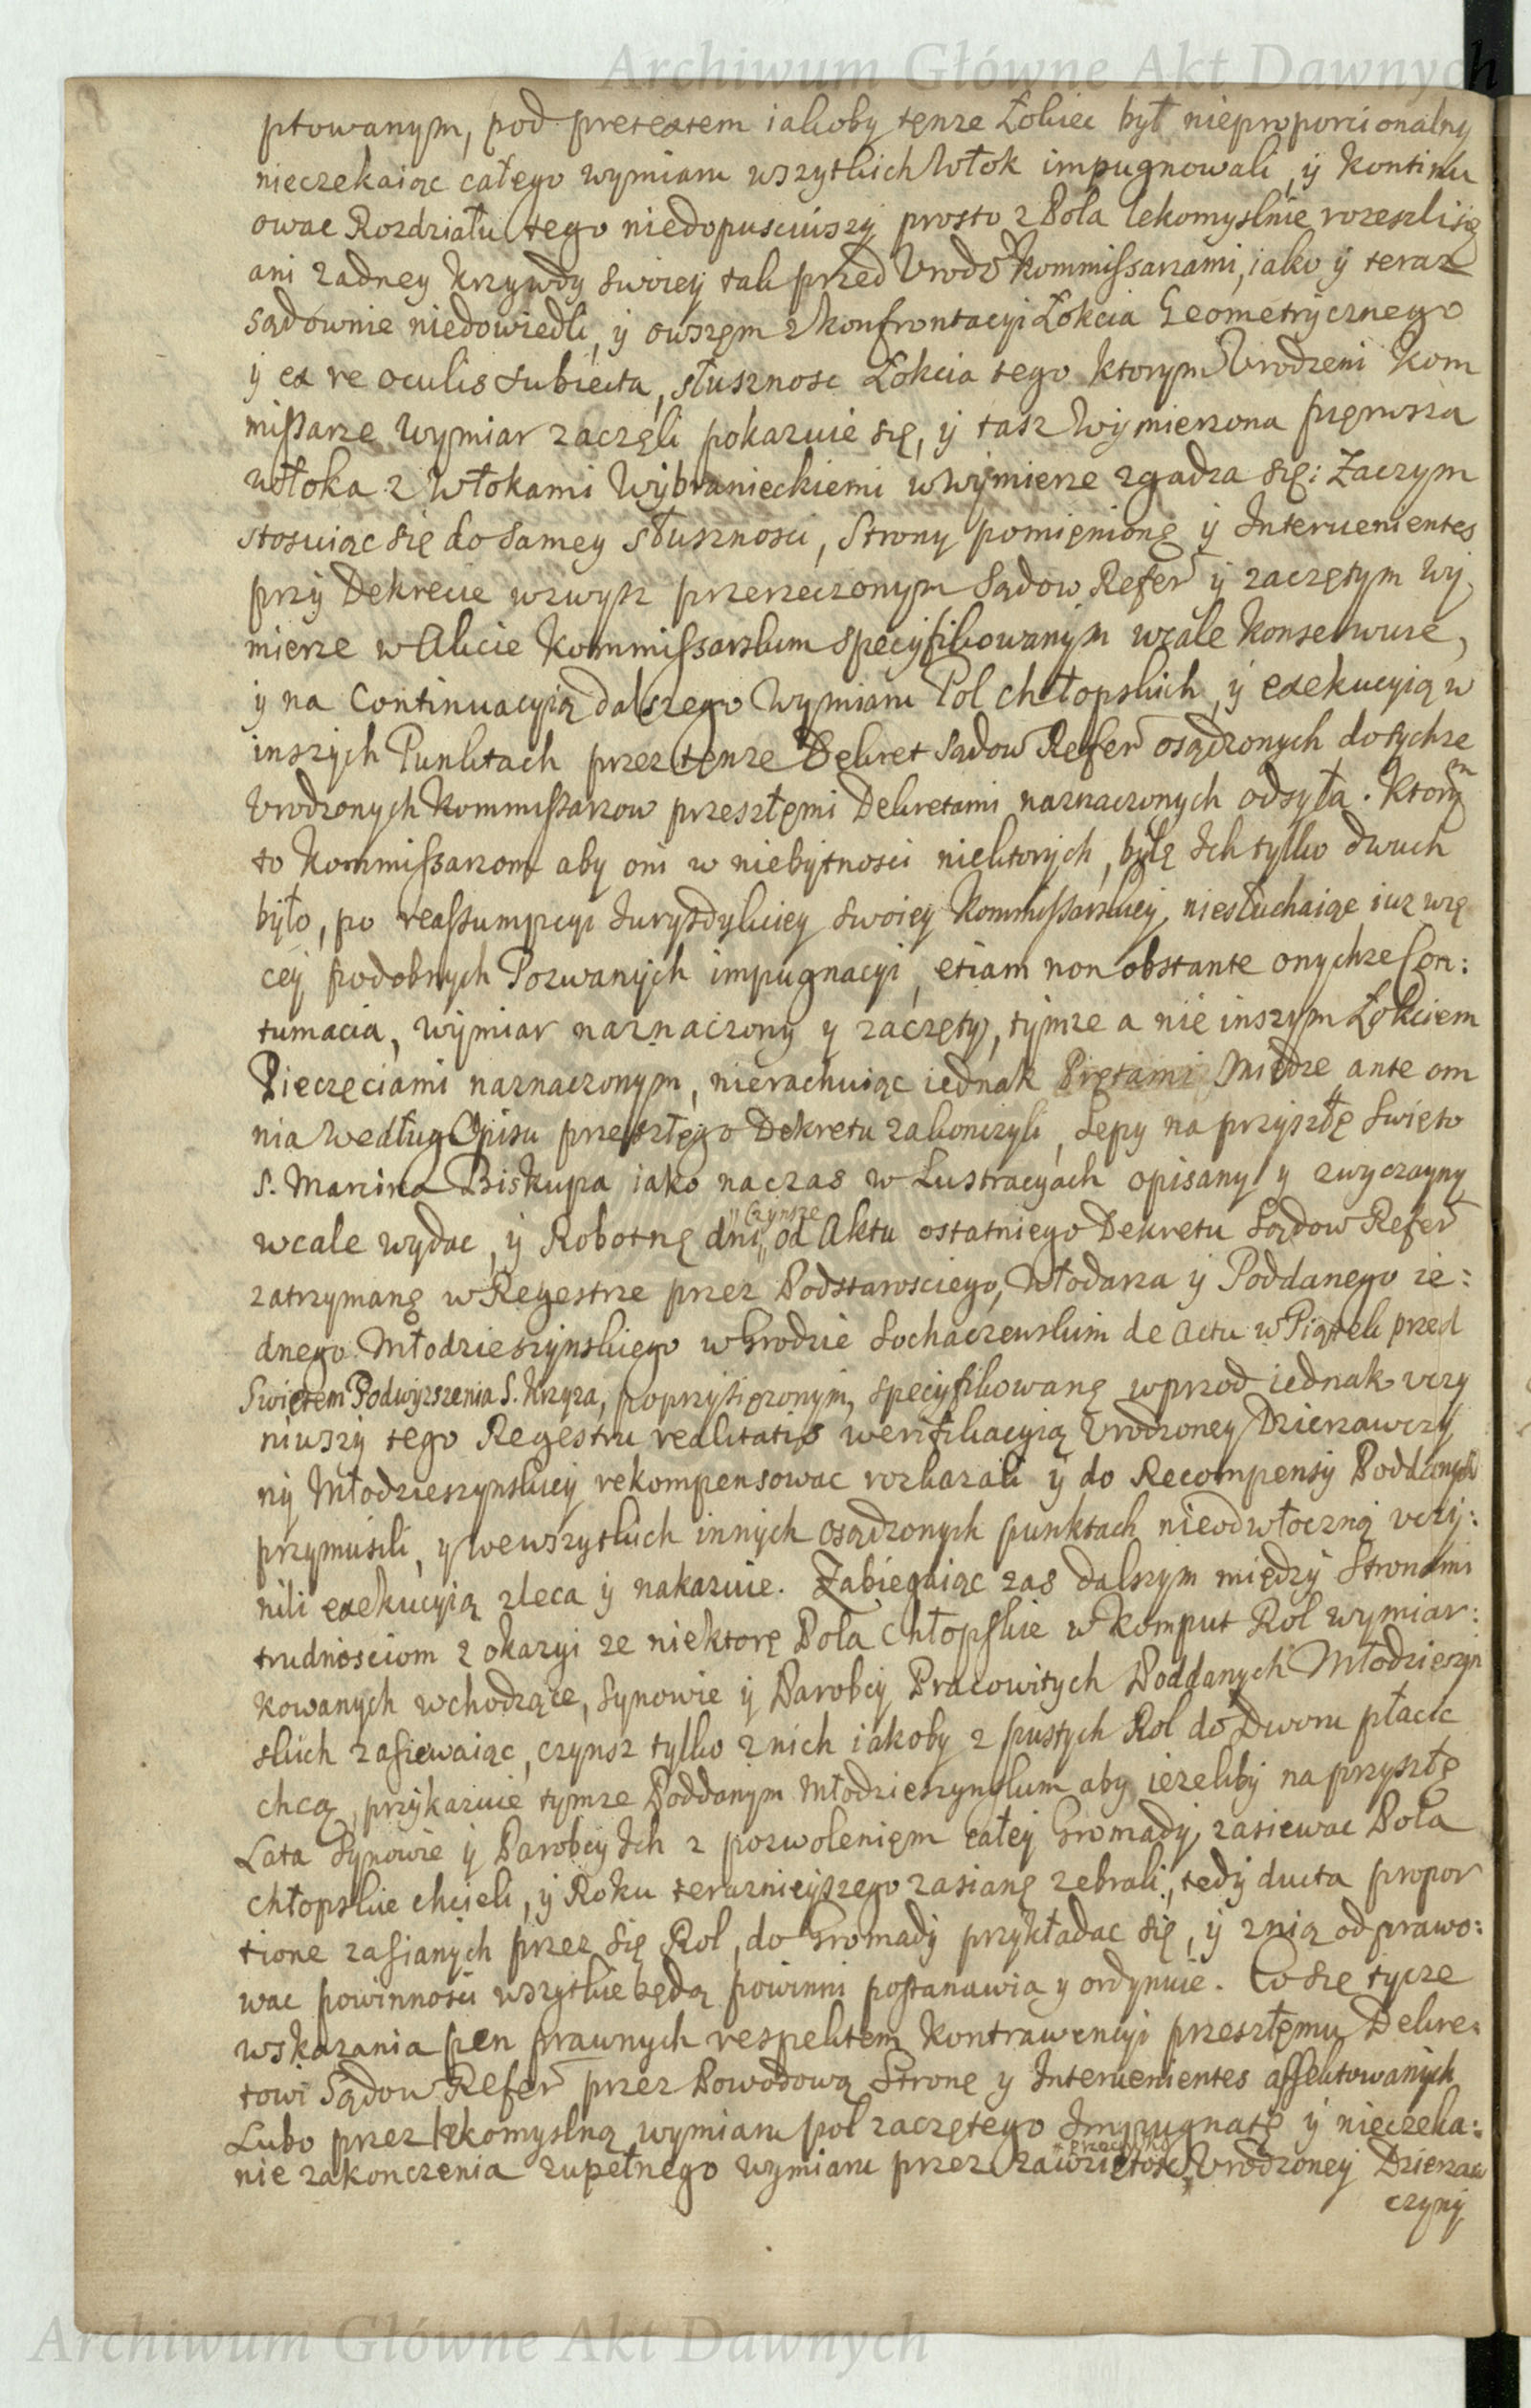 Archiwum Główne Akt Dawnych
ptowanym, pod pretextem iakoby tęnze Łokiec był nieproporcionalny
nieczekaiąc całego wymiaru wszytkich Włok impugnowali, ÿ kontinu
owac Rozdziału tego niedopusciwszÿ prosto z Pola lekomyslnie rozeszli się
ani zadney krzywdy swoieÿ tak przed Vrodz Kommissarzami, iako ÿ teraz
sądownie niedowiedli, ÿ owszęm z konfrontacyi Łokcia Geometrÿcznego
ÿ ex re oculis subiecta, słusznosc Łokcia tego ktorym Vrodzeni Kom
missarze Wymiar zaczęli pokazuie się, ÿ tasz Wÿmierzona pięrwsza
włoka z Włokami Wÿbranieckiemi w wÿmierze zgadza się: Zaczym
stosuiąc się do samey słusznosci, Strony pomięnionę ÿ Interuenientes
przÿ Dekrecie wzwysz przerzeczonym Sądow Refer ÿ zaczętym Wÿ
mierze w Akcie Kommissarskim specÿfikowanÿm wcale konserwuie,
ÿ na Continuacyią dalszego Wymiaru Pol chłopskich, ÿ exekucyią w
inszÿch Punktach przez tęnze Dekret Sądow Refer osądzonych dotychze
Vrodzonych Kommissarzow przeszłęmi Dekretami naznaczonych odsyła. Ktorÿm
to Kommissarzom aby oni w niebytnosci niektorÿch, bÿlę Ich tylko dwuch
bÿło, po reassumpcÿi Iurysdykcieÿ swoieÿ Kommissarskieÿ, niesłuchaiąc iuz wię
ceÿ podobnych Pozwanÿch impugnacyi, etiam non obstante onychze Con:
tumacia, Wÿmiar naznaczony y zaczęty, tÿmze a nie inszym Łokciem
Pieczęciami naznaczonym, nierachuiąc iednak Prętami Miedze, ante om
nia według Opisu przeszłęgo Dekretu zakonczyli, Sepy na przÿszłę Swięto
S. Marcina Biskupa iako na czas w Lustracyach opisany y zwyczayny
wcale wydac, ÿ Robotnę dni, " Czynsze " od Aktu ostatniego Dekretu Sądow Refer
zatrzymanę w Regestrze przez Podstarosciego, Włodarza ÿ Poddanego ie:
dnego Młodzieszÿnskiego w Grodzie Sochaczewskim de Actu w Piątek przed
Swiętem Podwÿzszenia S. Krzyza, poprzÿsięzonÿm, specÿfikowanę wprzod iednak vczy
niwszÿ tego Regestru realitatis werifikacyią Vrodzoney Dzierzawczÿ
nÿ Młodzieszynskieÿ rekompensowac rozkazali ÿ do Recompensÿ Poddanych
przymusili, ÿ wewszytkich innÿch osądzonych punktach nieodwłoczną vczÿ:
nili exekucyią zleca ÿ nakazuie. Zabiegaiąc zas dalszÿm międzÿ Stronami
trudnosciom z okazyi ze niektorę Pola Chłopskie w Komput Rol wymiar:
kowanych wchodzące, Synowie ÿ Parobcÿ Pracowitÿch Poddanych Młodzieszÿn
skich zasiewaiąc, czynsz tylko z nich iakoby z pustych Rol do Dworu płacic
chcą, przÿkazuie tymze Poddanÿm Młodzieszynskim aby iezelibÿ na przyszłę
Lata Synowie ÿ Parobcÿ Ich z pozwolenięm całeÿ Gromadÿ, zasiewac Pola
chłopskie chcieli, ÿ Roku teraznieÿszego zasianę zebrali, tedÿ ducta propor
tione zasianÿch przez się Rol, do Gromadÿ przÿkładac się, ÿ z nią odprawo:
wac powinnosci wszytkie będą powinni postanawia y ordynuie. Co się tycze
wskazania pęn prawnych respektem Kontrawencÿi przeszłęmu Dekre:
towi Sądow Refer przez Powodową Stronę y Interuenientes affektowanÿch
Lubo przez lekomyslną wymiaru pol zaczętego Impugnatę ÿ nieczeka:
nie zakonczenia zupełnego wymiaru przez zawziętosc Vrodzoneÿ Dzierzaw
czynÿ
Archiwum Główne Akt Dawnych